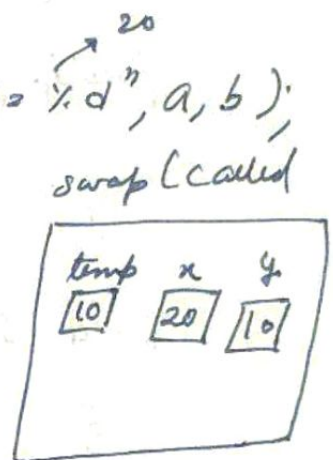 20
= %d", a, b);
swap (called
temp x y
10 20 10